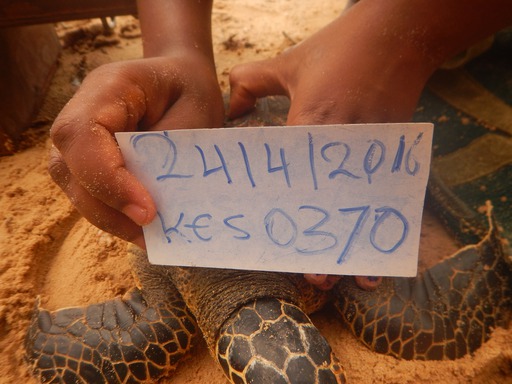 24/4/2016
KES0370